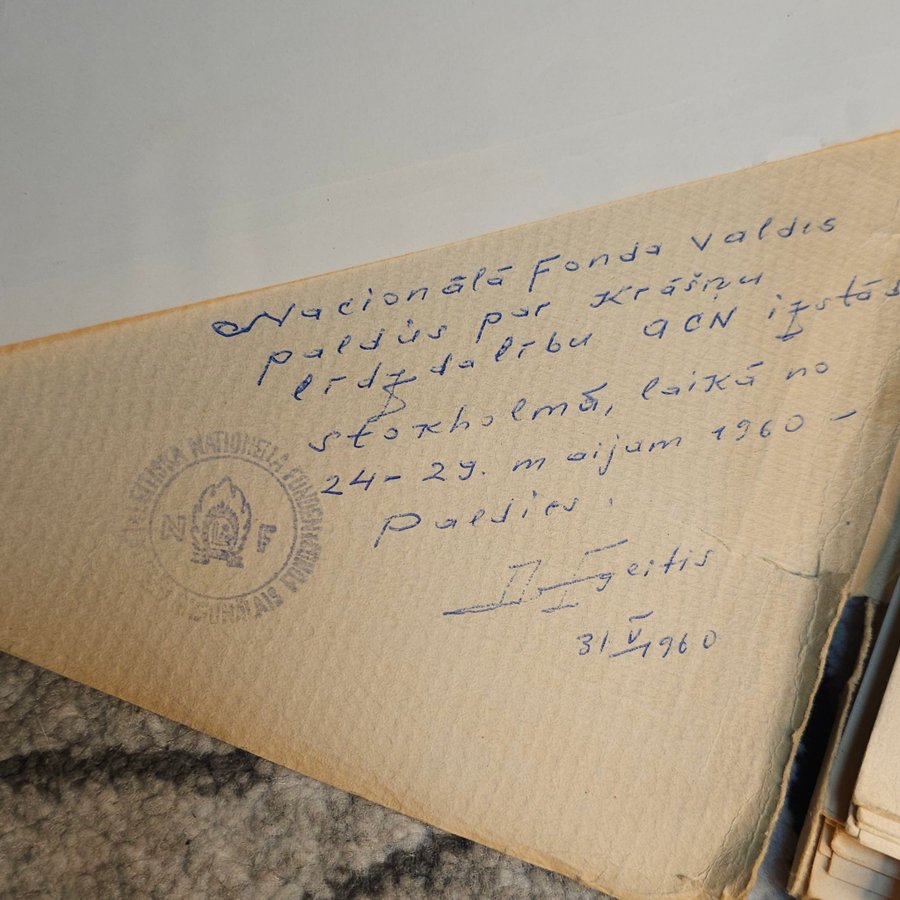 Nacionālā Fonda Valdes
paldies par krāšņu
līdzdalību ACN izstās
Stokholmā, laikā no
24-29. maijam 1960 -
Paldies.
geitis
31 V 1960
NATIONELLA FONDEN
N F